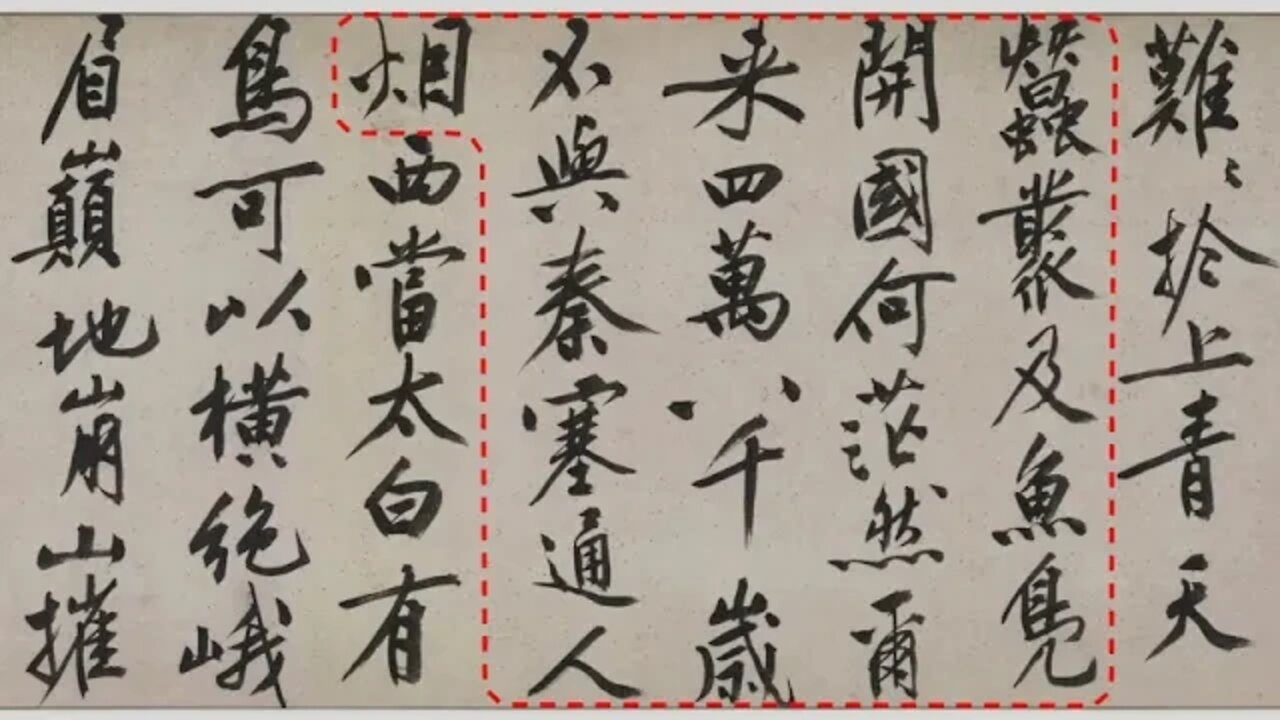 難〻於上青天
蠶叢及魚鳧
開國何茫然爾
来四萬八千歲
不與秦塞通人
烟西當太白有
鳥可以橫絶峨
眉巔地崩山摧